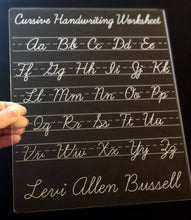 Cursive Handwriting Worksheet
Aa Bb Cc Dd Ee
Ff Gg Hh Ii Jj Kk
Ll Mm Nn Oo Pp
Qq Rr Ss Tt Uu
Vv Ww Xx Yy Zz
Levi Allen Bussell